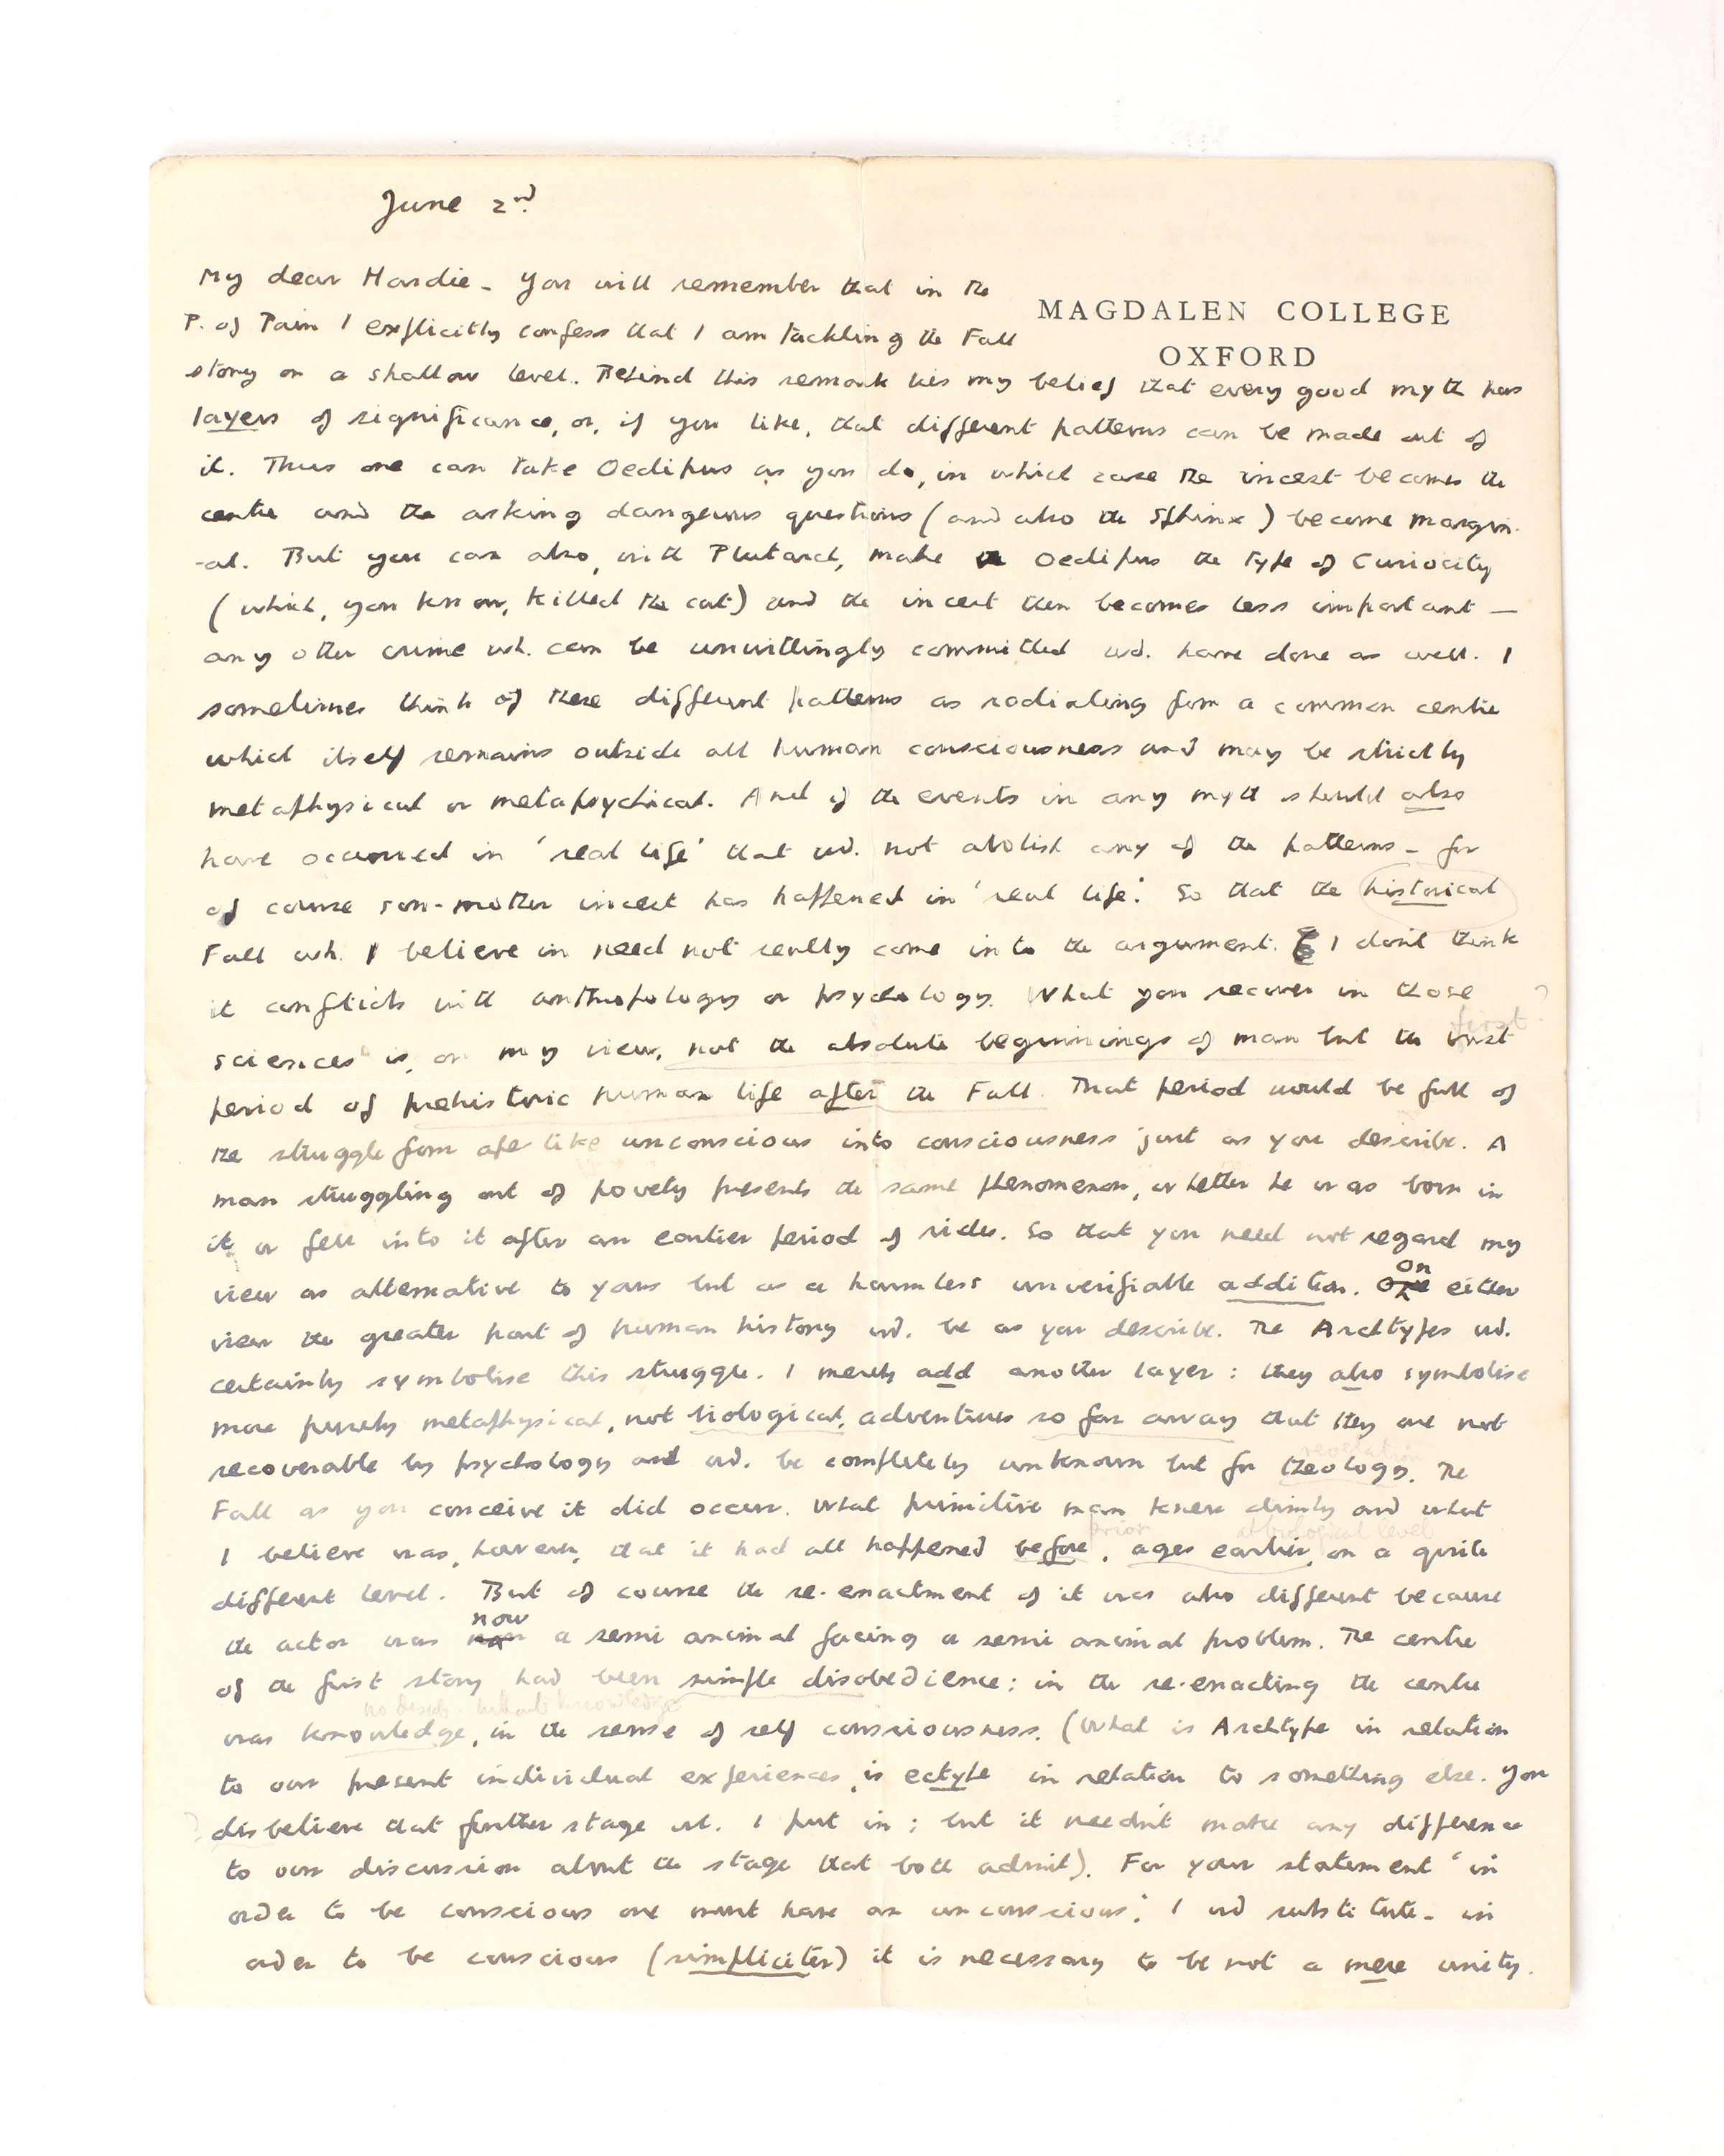 June 2nd.
MAGDALEN COLLEGE
OXFORD
My dear Hardie – You will remember that in the
P. of Pain I explicitly confess that I am tackling the Fall
story on a shallow level. Behind this remark lies my belief that every good myth has
layers of significance, or, if you like, that different patterns can be made out of
it. Thus one can take Oedipus as you do, in which case the incest becomes the
centre and the asking dangerous questions (and also the Sphinx) become margin-
-al. But you can also, with Plutarch, make Oedipus the type of Curiocity
(which, you know, killed the cat) and the incest then becomes less important –
any other crime wh. can be unwittingly committed wd. have done as well. I
sometimes think of these different patterns as radiating from a common centre
which itself remains outside all human consciousness and may be strictly
metaphysical or metapsychical. And if the events in any myth should also
have occurred in 'real life' that wd. not abolish any of the patterns – for
of course son-mother incest has happened in 'real life'. So that the historical
Fall wh. I believe in need not really come into the argument. I don't think
it conflicts with anthropology or psychology. What you recover in those
first ?
sciences is, on my view, not the absolute beginnings of man but the vast
period of prehistoric human life after the Fall. That period would be full of
the struggle from ape like unconscious into consciousness just as you describe. A
man struggling out of poverty presents the same phenomenon, whether he was born in
it or fell into it after an earlier period of riches. So that you need not regard my
view as alternative to yours but as a harmless unverifiable addition. On either
view the greater part of human history wd. be as you describe. The Archtypes wd.
certainly symbolise this struggle. I merely add another layer : they also symbolise
more purely metaphysical, not biological, adventures so far away that they are not
revelation
recoverable by psychology and wd. be completely unknown but for theology. The
Fall as you conceive it did occur. What primitive man knew dimly and what
prior level
I believe was, however, that it had all happened before, ages earlier, on a quite
different level. But of course the re-enactment of it was also different because
now
the actor was a semi animal facing a semi animal problem. The centre
of the first story had been simple disobedience : in the re-enacting the centre
no without knowledge
was knowledge, in the sense of self consciousness. (What is Archtype in relation
to our present individual experiences, is ectype in relation to something else. You
disbelieve that further stage wh. I put in ; but it needn't make any difference
to our discussion about the stage that both admit). For your statement 'in
order to be conscious one must have an unconscious', I wd substitute – in
order to be conscious (simpliciter) it is necessary to be not a mere unity.